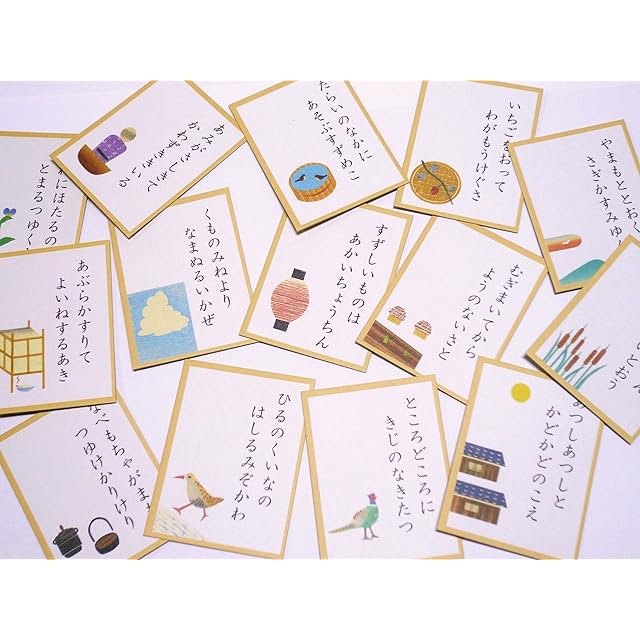 あみがさしきて
かわずききいる
たらいのなかに
あそぶすずめこ
いちごをおって
わがもうけぐさ
やまもととおく
さぎかすみゆ
にほたるの
とまるつゆく
くものみねより
なまぬるいかぜ
すずしいものは
あかいちょうちん
むぎまいてから
ようのないさと
あぶらかすりて
よいねするあき
とおう
べもちゃがま
つゆけかりけり
ひるのくいなの
はしるみぞかわ
ところどころに
きじのなきたつ
あつしあつしと
かどかどのこえ